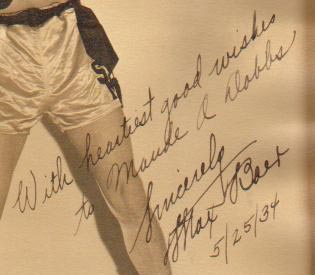 With heartiest good wishes
to Maude & Dobbs
Sincerely
Max Baer
5/25/34